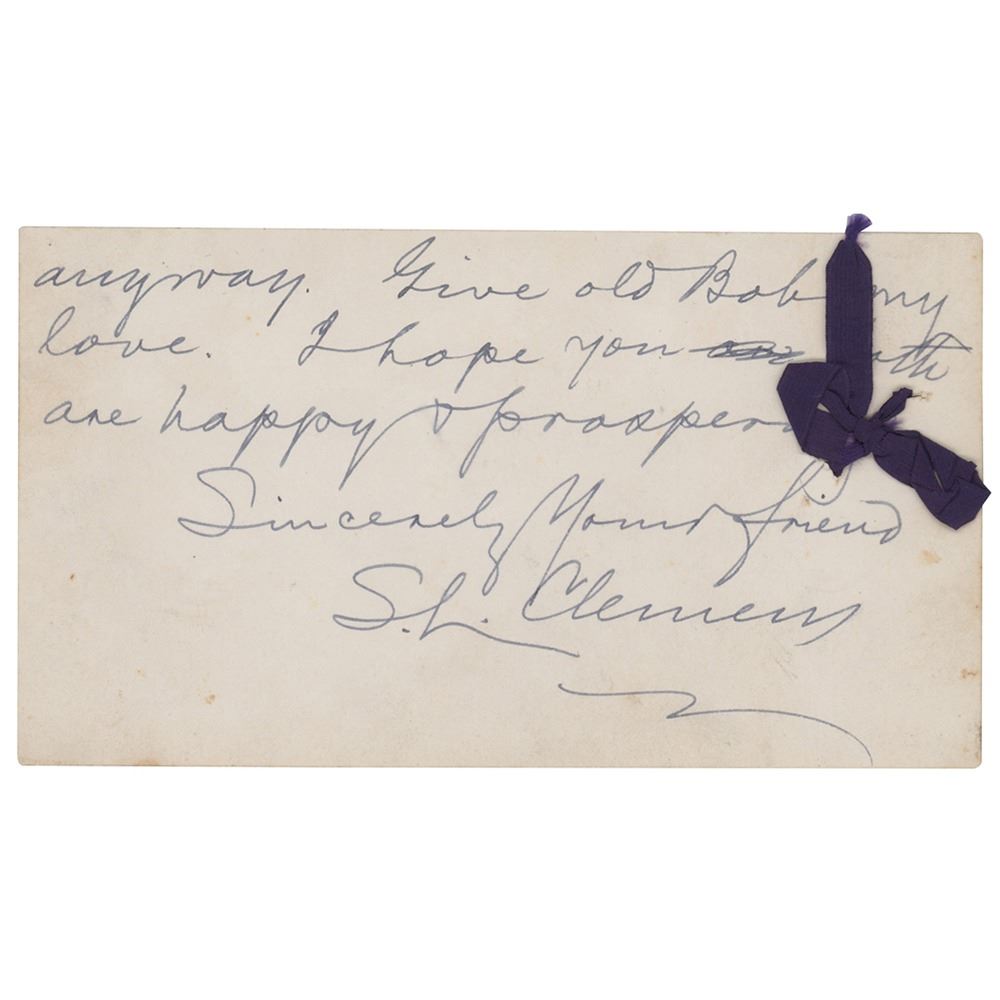 anyway. Give old Bob my
love. I hope you both
are happy & prosperous
Sincerely Your friend
S.L. Clemens